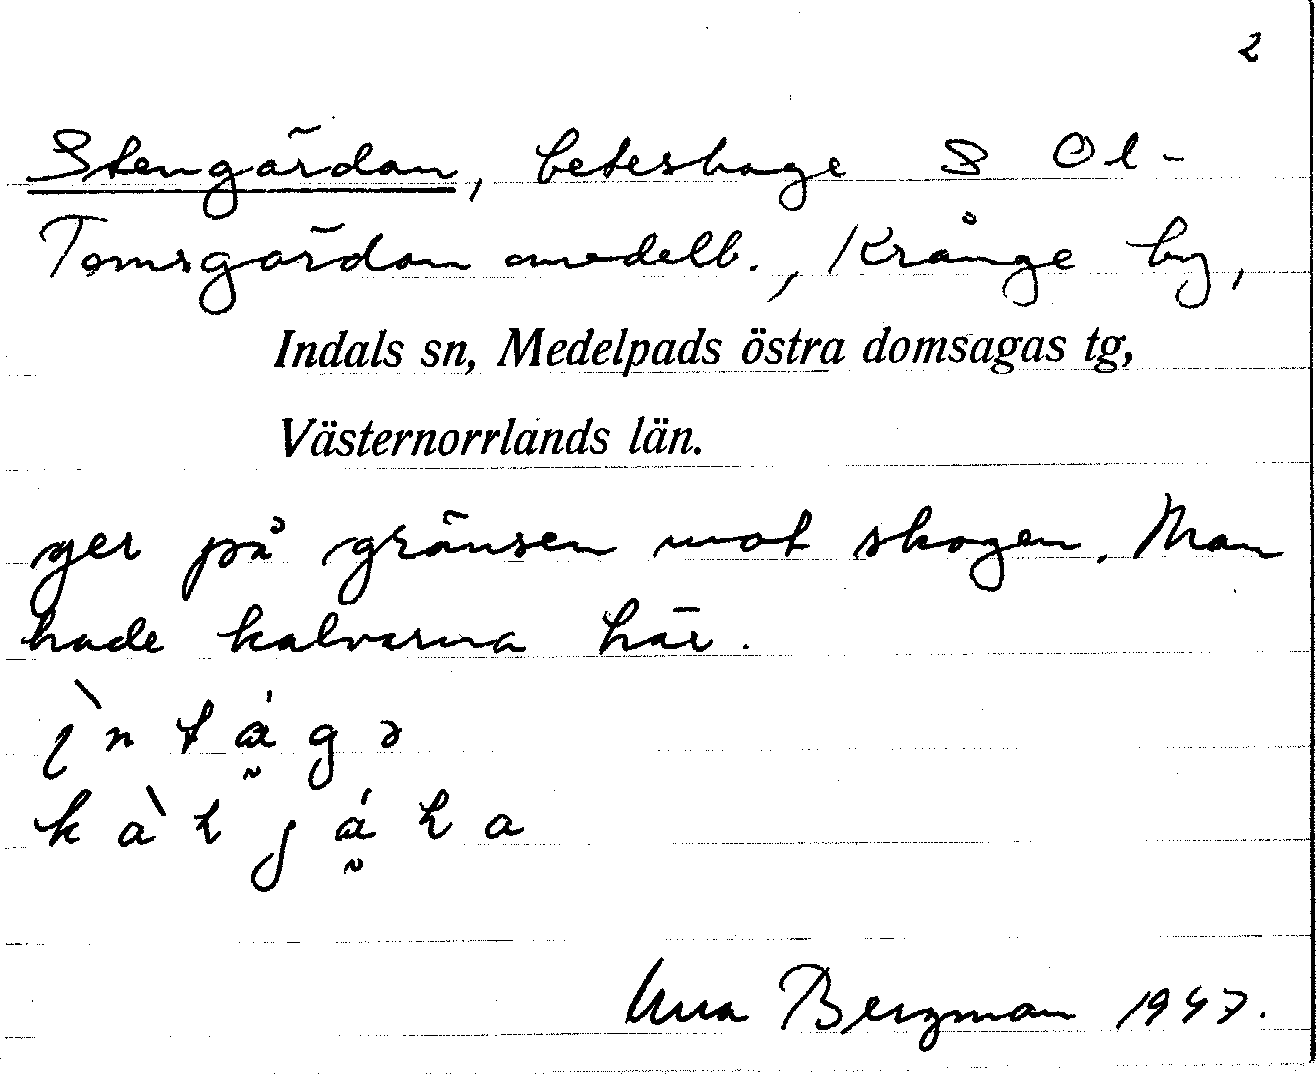 2
Stengärdan, beteshage S Ol-
Tomsgärdan omedelb., Krånge by,
Indals sn, Medelpads östra domsagas tg,
Västernorrlands län.
ger på gränsen mot skogen. Man
hade kalvarna här.
Bergman 1947.